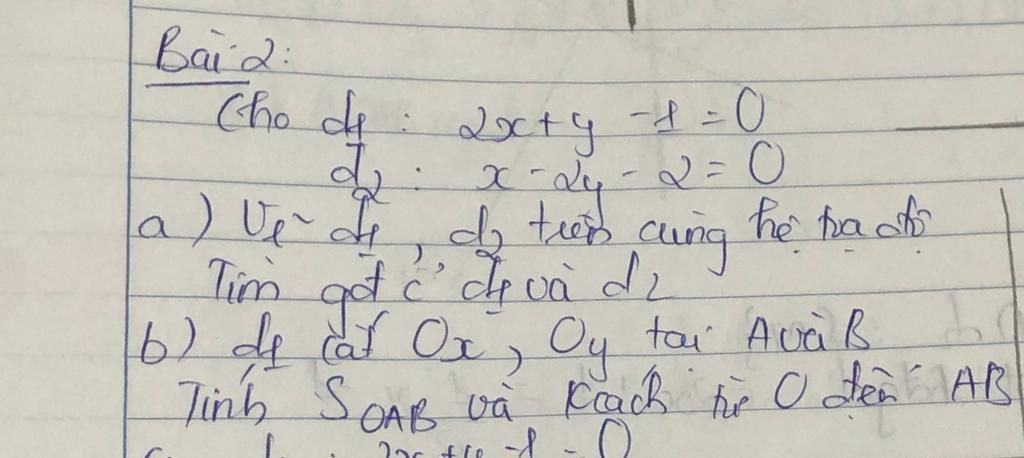 Bài 2:
Cho d1 : 2x + y - 1 = 0
d2 : x - 2y - 2 = 0
a) Vẽ d1, d2 trên cùng hệ tọa độ
Tìm gđ c' d1 và d2
b) d1 cắt Ox, Oy tại A và B
Tính SOAB và K/cách từ O đến AB
2x + y - 1 = 0